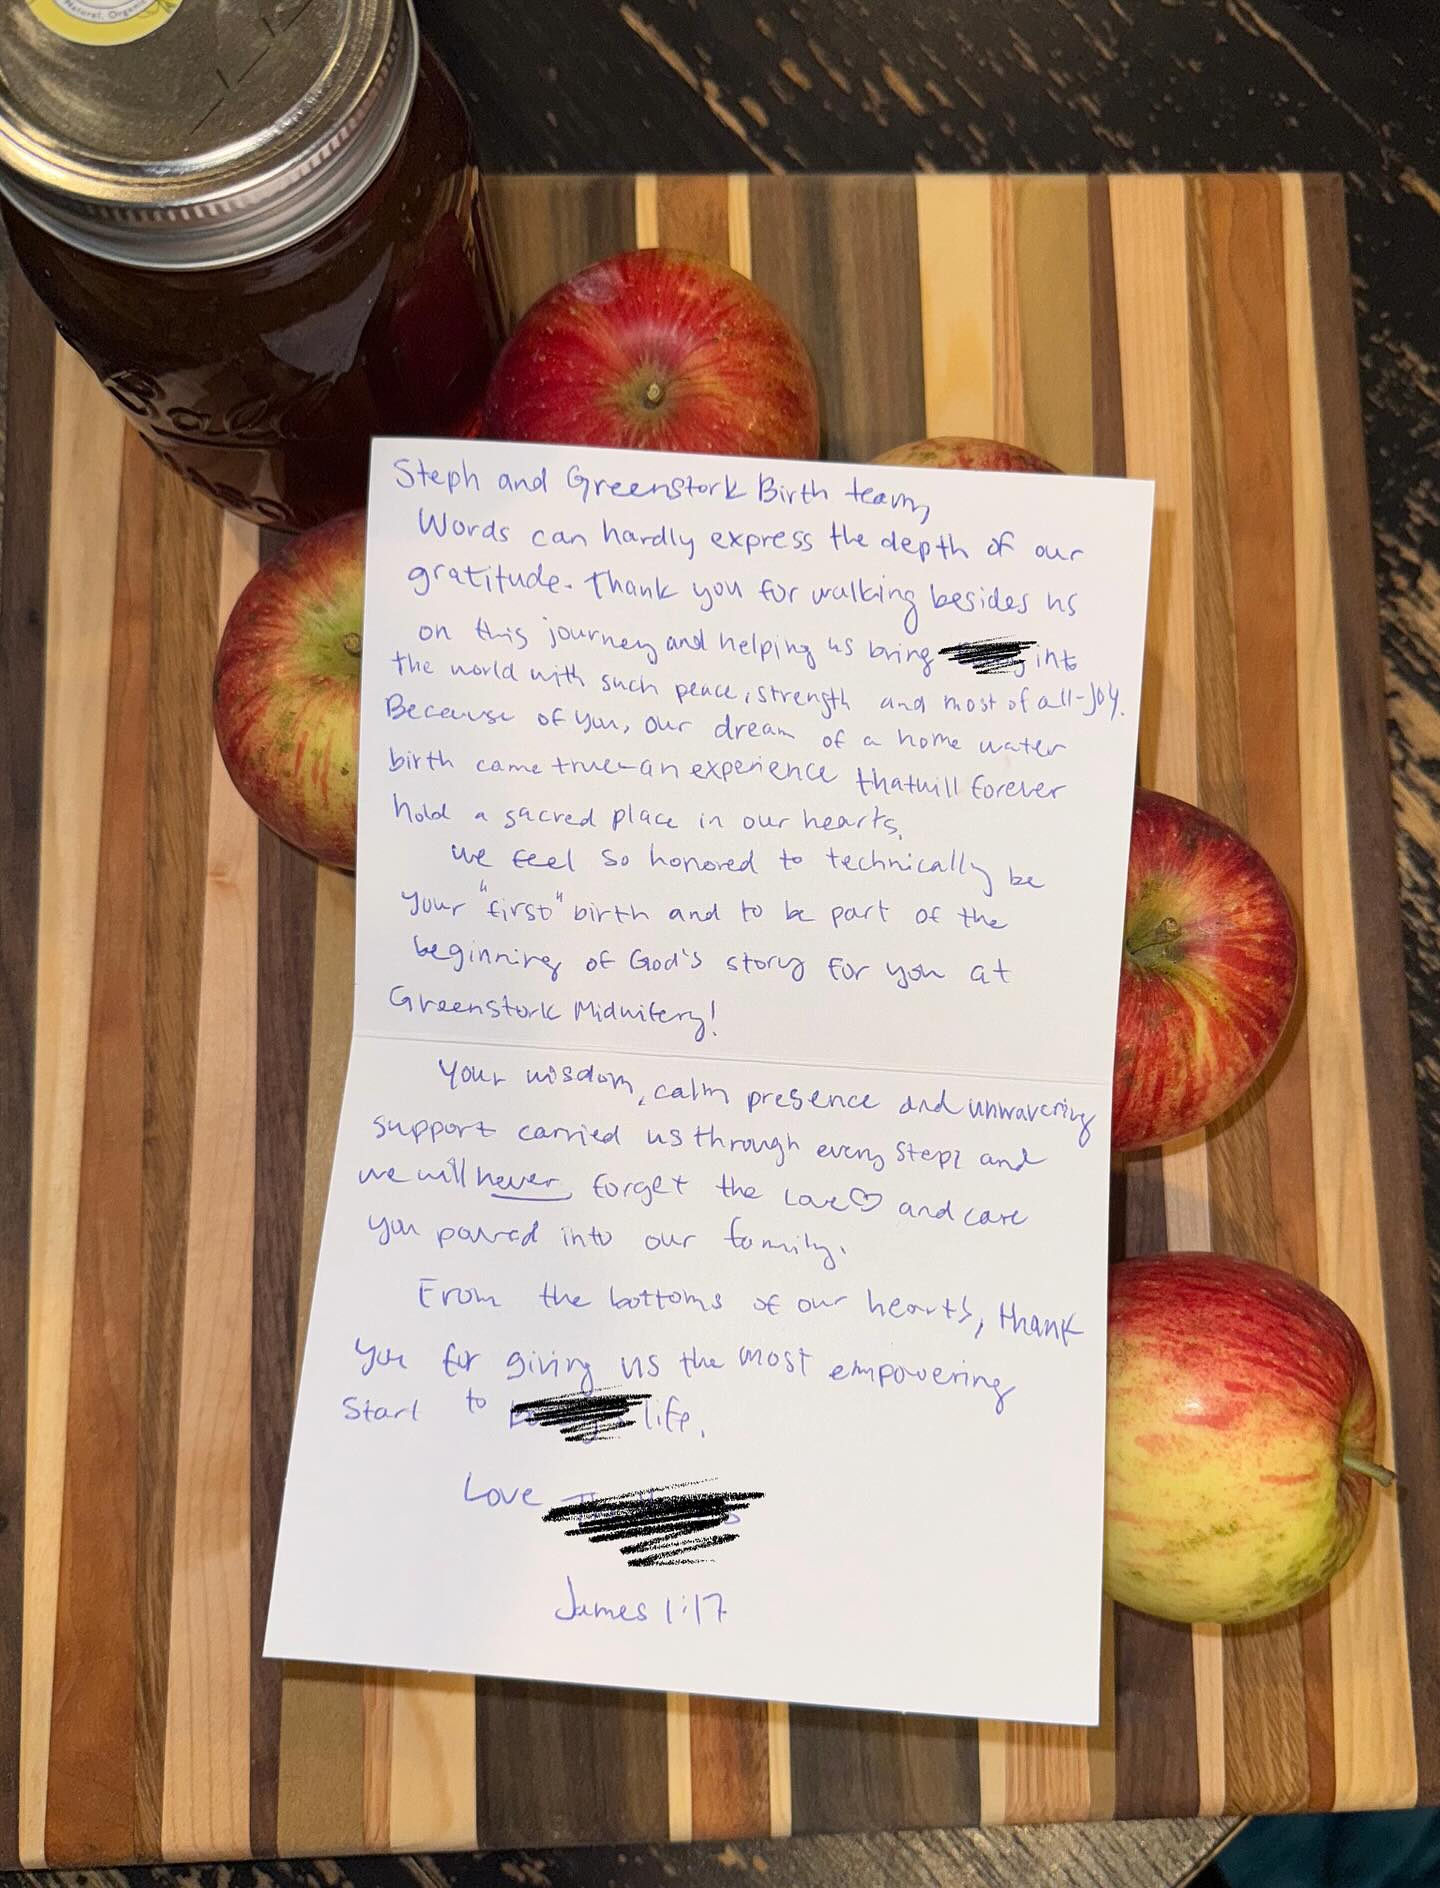 Natural, Organic
Ball
Steph and Greenstork Birth team,
Words can hardly express the depth of our
gratitude. Thank you for walking besides us
on this journey and helping us bring into
the world with such peace, strength and most of all-joy.
Because of you, our dream of a home water
birth came true-an experience that will forever
hold a sacred place in our hearts.
We feel so honored to technically be
your "first" birth and to be part of the
beginning of God's story for you at
Greenstork Midwifery!
Your wisdom, calm presence and unwavering
support carried us through every step and
we will never forget the love♡ and care
you poured into our family.
From the bottoms of our hearts, thank
you for giving us the most empowering
Start to life.
Love
James 1:17